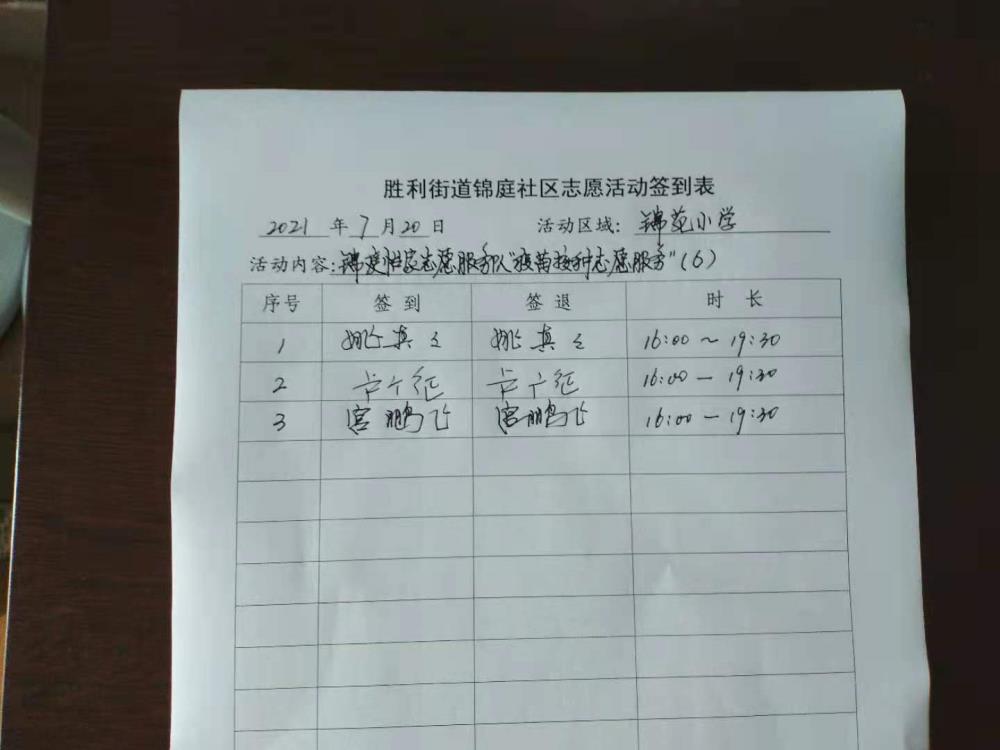 胜利街道锦庭社区志愿活动签到表
2021 年 7 月 20 日 活动区域: 锦苑小学
活动内容: 锦庭怡家志愿服务队"疫苗接种志愿服务"(6)
序号 签到 签退 时长
1 姚真之 姚真之 16:00～19:30
2 16:00—19:30
3 宫鹏飞 宫鹏飞 16:00—19:30